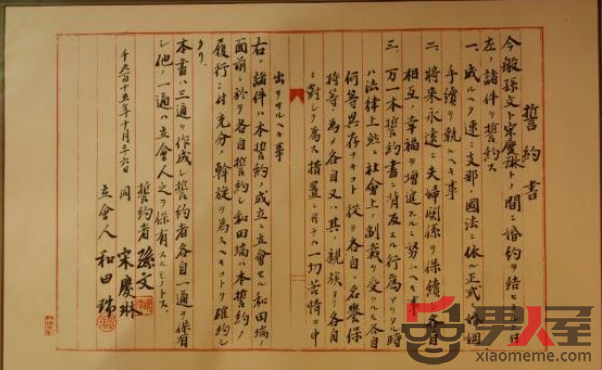 誓約書
今般孫文ト宋慶琳トノ間ニ婚約ヲ結ヒタルニ付
左ノ諸件ヲ誓約ス
一、成ルヘク速ニ支那ノ國法ニ依ル正式ノ婚姻
手續ヲ執ルヘキ事
二、將来永遠ニ夫婦関係ヲ保續シ各自
相互ノ幸福ヲ増進スルニ努ムヘキ事
三、万一本誓約書ニ背反スル行為アリタル時
ハ法律上並ニ社会上ノ制裁ヲ受クルモ各自
何等異存ナキコト從テ各自ノ名譽保
持等ノ為メ各自又ハ其ノ親族ヨリ各自
ニ對シテ為ス措置ニ付テハ一切苦情ヲ申
出サルヘキ事
右ノ諸件ハ本誓約ノ成立ニ立會セル和田瑞ノ
面前ニ於テ各自誓約シ和田瑞ハ本誓約ノ
履行ニ付充分ノ斡旋ヲ為スヘキコトヲ確約シ
タリ、
本書ハ三通ヲ作成シ誓約者各自一通ヲ保有
シ他ノ一通ハ立會人之ヲ保有スルモノトス、
千九百十五年十月二十六日
誓約者 孫文
同 宋慶琳
立會人 和田瑞
男人屋
xiaomeme.com